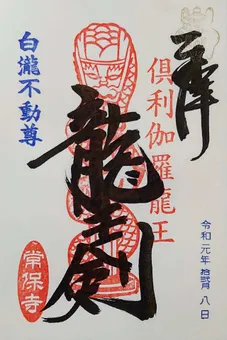 奉拝
倶利伽羅龍王
龍王剣
白瀧不動尊
常保寺
令和元年拾月八日